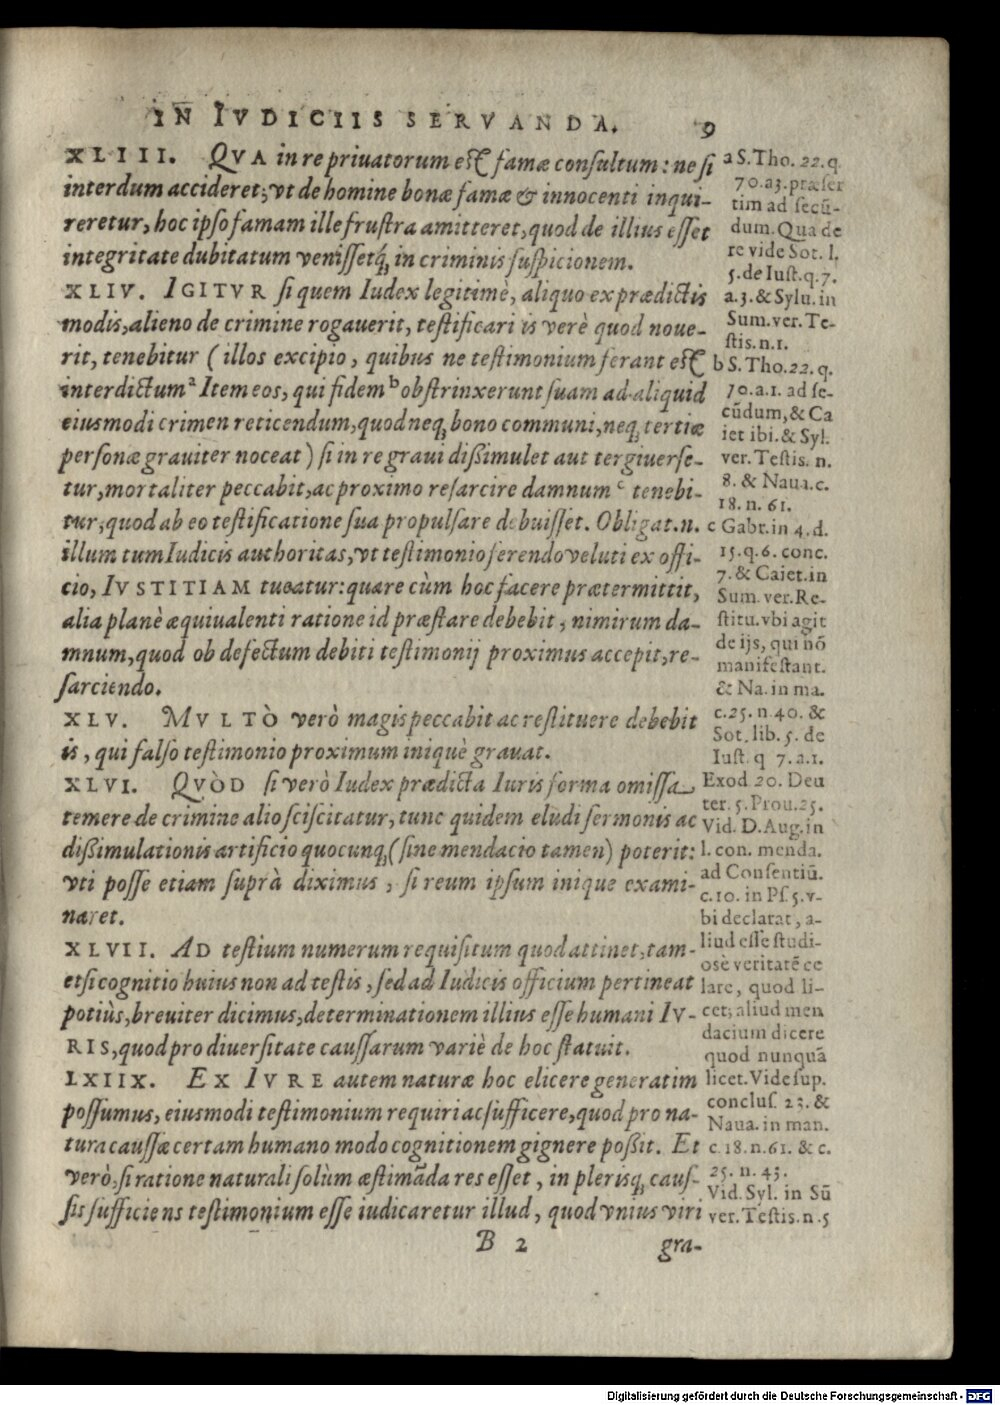 IN IVDICIIS SERVANDA. 9
XLIII. QVA in re priuatorum est famæ consultum: ne si
interdum accideret, vt de homine bonæ famæ & innocenti inqui-
reretur, hoc ipso famam ille frustra amitteret, quod de illius esset
integritate dubitatum venissetq́; in criminis suspicionem.
XLIV. IGITVR si quem Iudex legitimè, aliquo ex prædictis
modis, alieno de crimine rogauerit, testificari is verè quod noue-
rit, tenebitur (illos excipio, quibus ne testimonium ferant est
interdictum a Item eos, qui fidem b obstrinxerunt suam ad aliquid
eiusmodi crimen reticendum, quod neq; bono communi, neq; tertiæ
personæ grauiter noceat) si in re graui dißimulet aut tergiuerse-
tur, mortaliter peccabit, ac proximo resarcire damnum c tenebi-
tur, quod ab eo testificatione sua propulsare debuisset. Obligat.n.
illum tum Iudicis authoritas, vt testimonio ferendo veluti ex offi-
cio, IVSTITIAM tueatur: quare cùm hoc facere prætermittit,
alia planè æquiualenti ratione id præstare debebit, nimirum da-
mnum, quod ob defectum debiti testimonij proximus accepit, re-
sarciendo.
XLV. MVLTÒ verò magis peccabit ac restituere debebit
is, qui falso testimonio proximum iniquè grauat.
XLVI. QVÒD si verò Iudex prædicta Iuris forma omissa
temere de crimine alio sciscitatur, tunc quidem eludi sermonis ac
dißimulationis artificio quocunq; (sine mendacio tamen) poterit:
vti posse etiam suprà diximus, si reum ipsum inique exami-
naret.
XLVII. AD testium numerum requisitum quod attinet, tam-
etsi cognitio huius non ad testis, sed ad Iudicis officium pertineat
potiùs, breuiter dicimus, determinationem illius esse humani IV-
RIS, quod pro diuersitate caussarum variè de hoc statuit.
LXIIX. EX IVRE autem naturæ hoc elicere generatim
possumus, eiusmodi testimonium requiri ac sufficere, quod pro na-
tura caussæ certam humano modo cognitionem gignere poßit. Et
verò, si ratione naturali solùm æstimāda res esset, in plerisq; caus-
sis sufficiens testimonium esse iudicaretur illud, quod vnius viri
B 2 gra-
a S. Tho. 22. q.
70. a3. præser
tim ad secū-
dum. Qua de
re vide Sot. l.
5. de Iust. q. 7.
a. 3. & Sylu. in
Sum. ver. Te-
stis. n. 1.
b S. Tho. 22. q.
70. a. 1. ad se-
cūdum, & Ca
iet ibi. & Syl.
ver. Testis. n.
8. & Naua. c.
18. n. 61.
c Gabr. in 4. d.
15. q. 6. conc.
7. & Caiet. in
Sum. ver. Re-
stitu. vbi agit
de ijs, qui nō
manifestant.
& Na. in ma.
c. 25. n. 40. &
Sot. lib. 5. de
Iust. q 7. a. 1.
Exod 20. Deu
ter. 5. Prou. 25.
Vid. D. Aug. in
l. con. menda.
ad Consentiū.
c. 10. in Ps. 5. v-
bi declarat, a-
liud esse studi-
osè veritatē ce
lare, quod li-
cet; aliud men
dacium dicere
quod nunquā
licet. Vide sup.
conclus. 23. &
Naua. in man.
c. 18. n. 61. & c.
25. n. 43.
Vid. Syl. in Sū
ver. Testis. n. 5
Digitalisierung gefördert durch die Deutsche Forschungsgemeinschaft - DFG